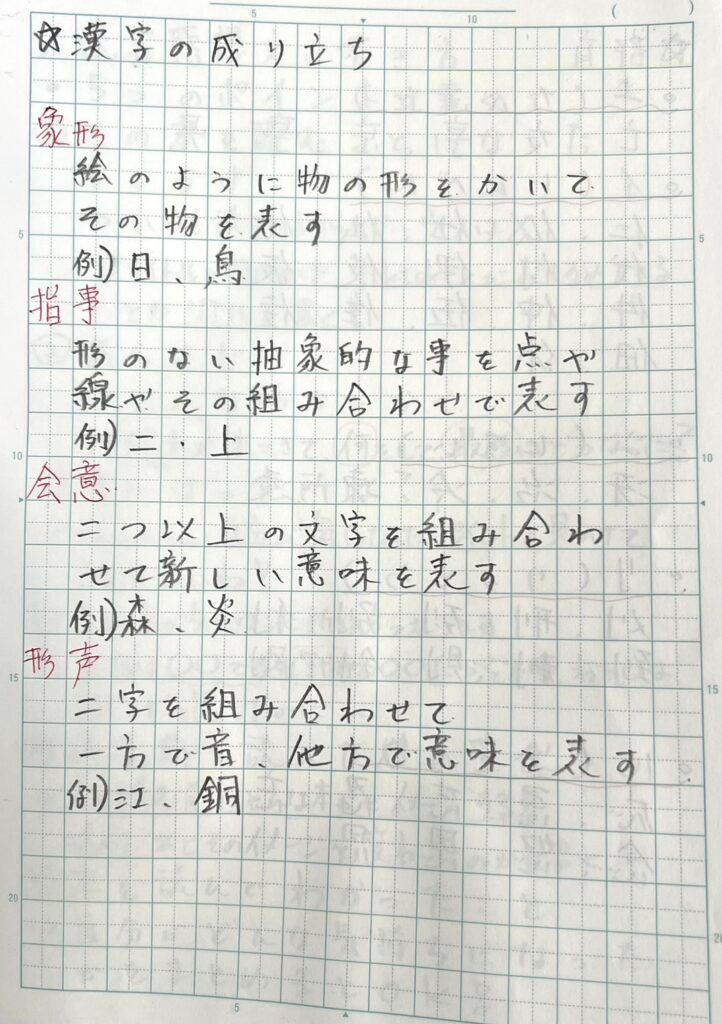 ☆漢字の成り立ち
象形
絵のように物の形をかいて
その物を表す
例)日、鳥
指事
形のない抽象的な事を点や
線やその組み合わせで表す
例)二・上
会意
二つ以上の文字を組み合わ
せて新しい意味を表す
例)森、炎
形声
二字を組み合わせて
一方で音、他方で意味を表す
例)江、銅